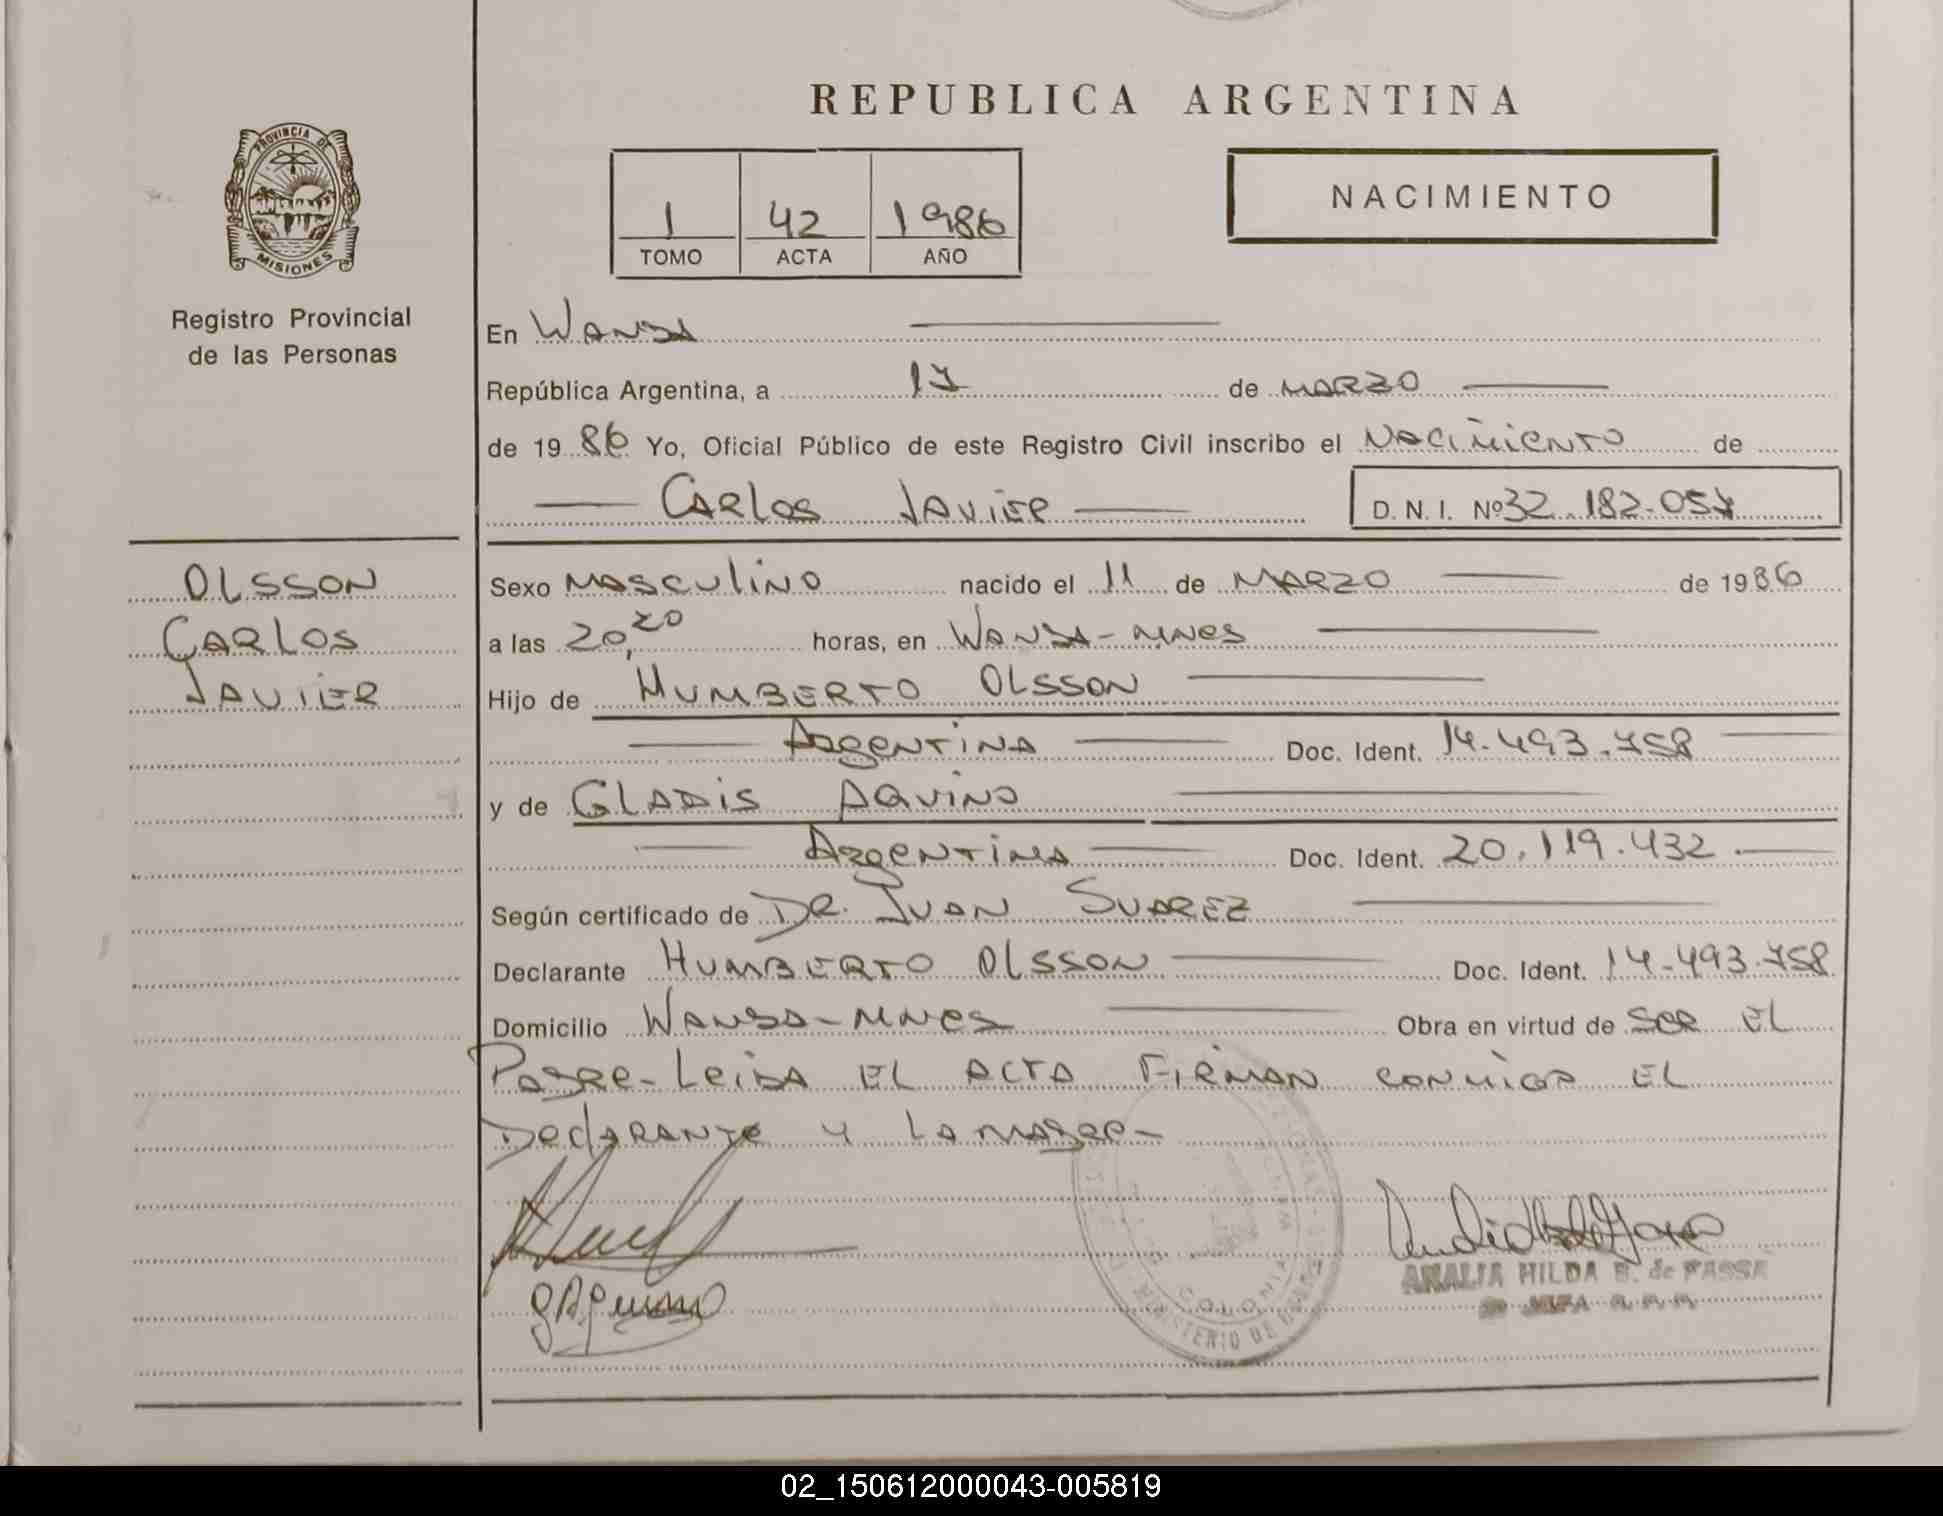 REPUBLICA ARGENTINA
PROVINCIA DE
MISIONES
Registro Provincial
de las Personas
1 42 1986
TOMO ACTA AÑO
NACIMIENTO
En WANDA
República Argentina, a 17 de MARZO
de 1986 Yo, Oficial Público de este Registro Civil inscribo el NACIMIENTO de
CARLOS JAVIER D. N. I. Nº 32.182.057
OLSSON
CARLOS
JAVIER
Sexo MASCULINO nacido el 11 de MARZO de 1986
a las 20,20 horas, en WANDA-MNES
Hijo de HUMBERTO OLSSON
ARGENTINA Doc. Ident. 14.493.758
y de GLADIS AQUINO
ARGENTINA Doc. Ident. 20.119.432
Según certificado de DR. JUAN SUAREZ
Declarante HUMBERTO OLSSON Doc. Ident. 14.493.758
Domicilio WANDA-MNES Obra en virtud de SER EL
PADRE-LEIDA EL ACTA FIRMAN CONMIGO EL
DECLARANTE Y LA MADRE-
COLONIA
MINISTERIO DE
ANALIA HILDA B. de PASSE
JEFA
02_150612000043-005819